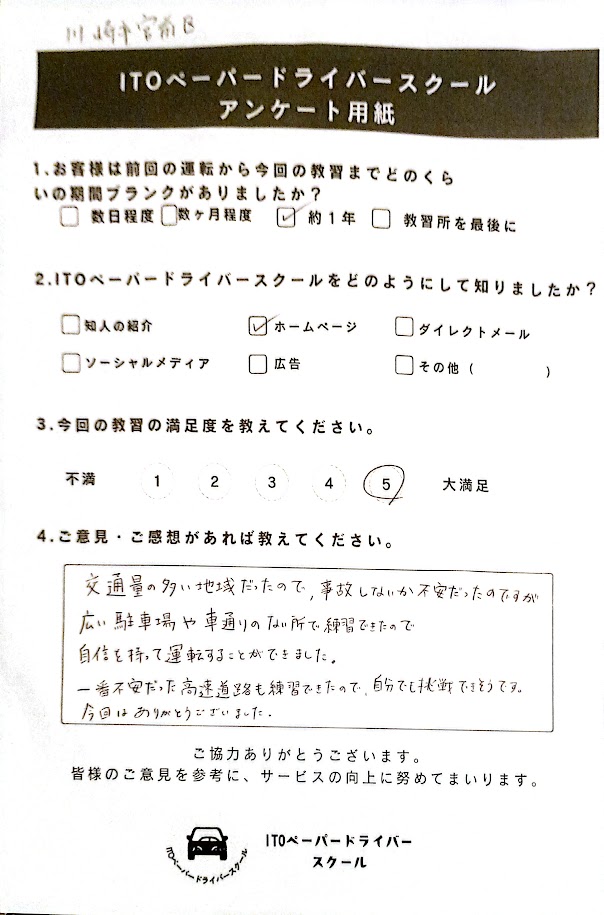 川崎市宮前区
ITOペーパードライバースクール
アンケート用紙
1.お客様は前回の運転から今回の教習までどのくら
いの期間ブランクがありましたか?
数日程度 数ヶ月程度 約1年 教習所を最後に
2.ITOペーパードライバースクールをどのようにして知りましたか?
知人の紹介 ホームページ ダイレクトメール
ソーシャルメディア 広告 その他 ( )
3.今回の教習の満足度を教えてください。
不満 1 2 3 4 5 大満足
4.ご意見・ご感想があれば教えてください。
交通量の多い地域だったので,事故しないか不安だったのですが
広い駐車場や車通りのない所で練習できたので
自信を持って運転することができました。
一番不安だった高速道路も練習できたので、自分でも挑戦できそうです。
今回はありがとうございました.
ご協力ありがとうございます。
皆様のご意見を参考に、サービスの向上に努めてまいります。
ITOペーパードライバー
スクール
ITOペーパードライバースクール